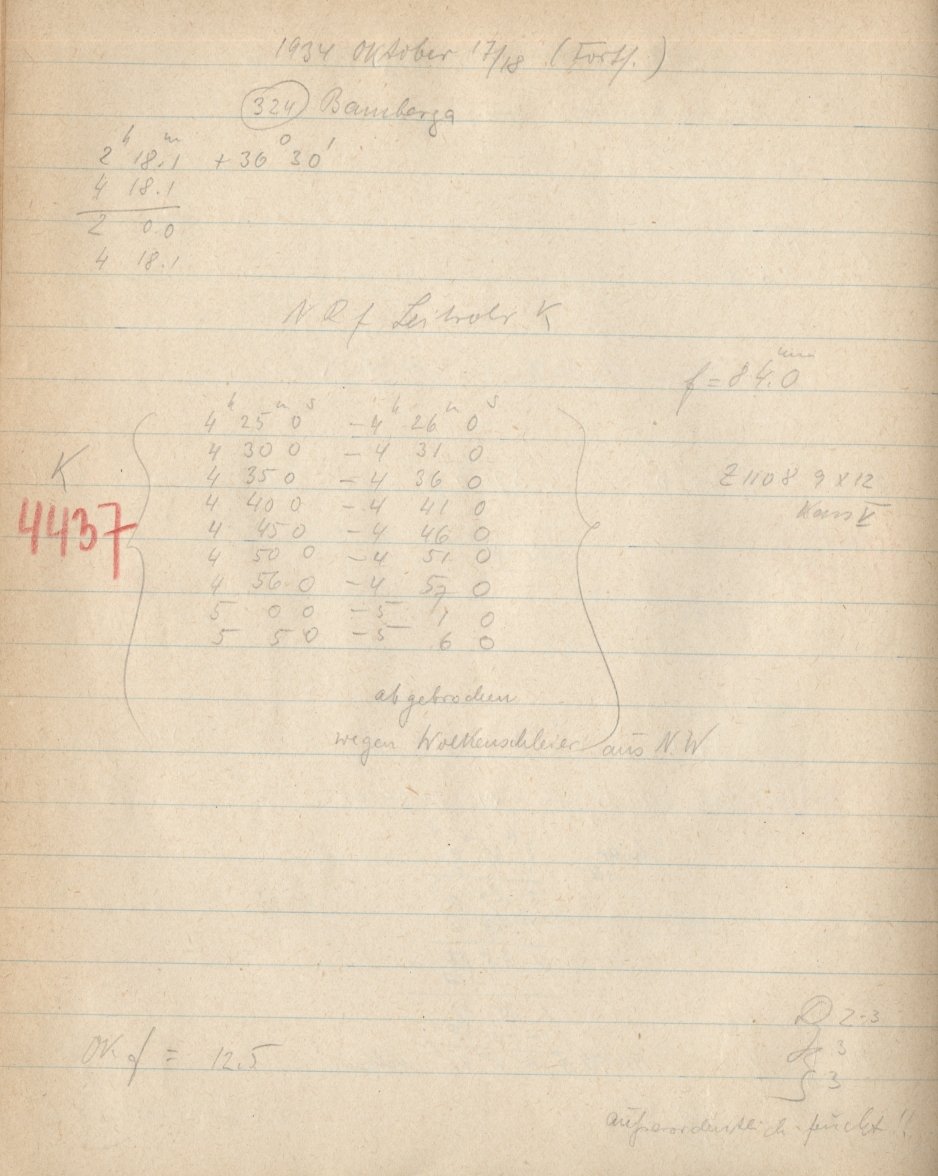 1934 Oktober 17/18 (Forts.)
324 Bamberga
2h 18.1m +36° 30'
4 18.1
2 0.0
4 18.1
Leitrohr K
f = 84.0 mm
4h 25m 0s - 4h 26m 0s
4 30 0 - 4 31 0
4 35 0 - 4 36 0
4 40 0 - 4 41 0
4 45 0 - 4 46 0
4 50 0 - 4 51 0
4 56 0 - 4 57 0
5 0 0 - 5 1 0
5 5 0 - 5 6 0
K
4437
Z 1108 9 x 12
Kass V
abgebrochen
wegen Wolkenschleier aus NW
= 12.5
2-3
3
S 3
außerordentlich feucht!!